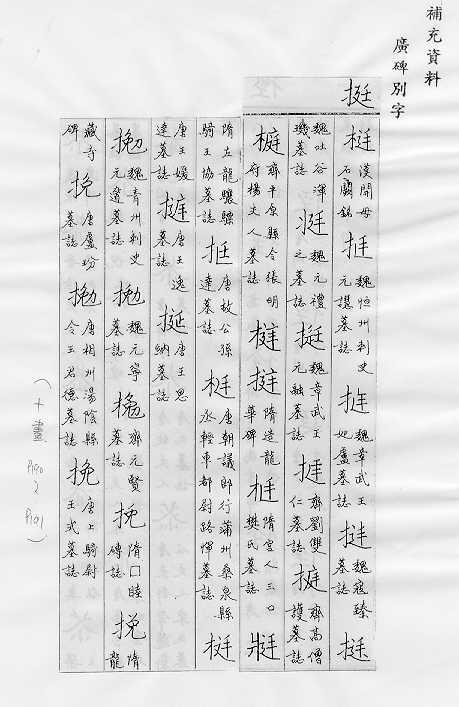 補充資料
廣碑別字
挺
梃 漢開母石闕銘 挰 魏恒州刺史元譿墓誌 挰 魏章武王妃盧墓誌 挞 魏寇臻墓誌 挺
魏吐谷渾璣墓誌 挺 魏元禮之墓誌 挺 魏章武王元融墓誌 挰 齊劉雙仁墓誌 挺 齊高僧護墓誌
榳 齊平原縣令張明府楊夫人墓誌 梿 挺 隋造龍華碑 梃 隋宮人三口樊氏墓誌
隋左龍驤驃騎王協墓誌 挰 唐故公孫達墓誌 梃 唐朝議郎行蒲州桑泉縣丞輕車都尉路惲墓誌 梃
唐王媛達墓誌 唐王逸墓誌 挻 唐王思納墓誌
挽 魏青州刺史元邃墓誌 魏元寧墓誌 挽 齊元賢墓誌 挽 隋口睦磚誌 挽 隋龍
藏寺碑 挽 唐盧玢墓誌 唐相州湯陰縣令王君德墓誌 挽 唐上騎尉王式墓誌
(十畫 P190 2 P191)